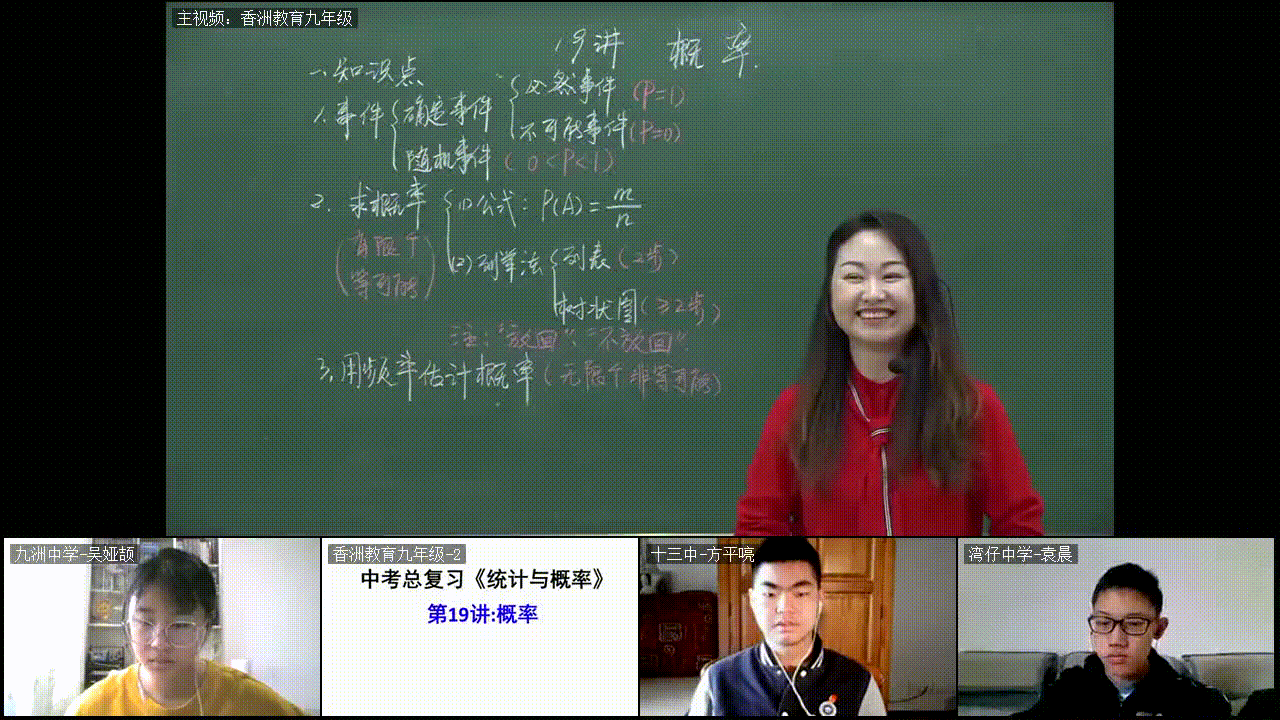 主视频：香洲教育九年级
19讲 概率.
一、知识点
1.事件 { 确定事件 { 必然事件 (P=1)
不可能事件 (P=0)
随机事件 (0<P<1)
2. 求概率 { (1)公式: P(A)=m/n
(有限个
等可能)
(2)列举法 { 列表 (2步)
树状图 (≥2步)
注:"放回"、"不放回".
3.用频率估计概率 (无限个 非等可能)
九洲中学-吴娅颉
香洲教育九年级-2
十三中-方平喨
湾仔中学-袁晨
中考总复习《统计与概率》
第19讲:概率